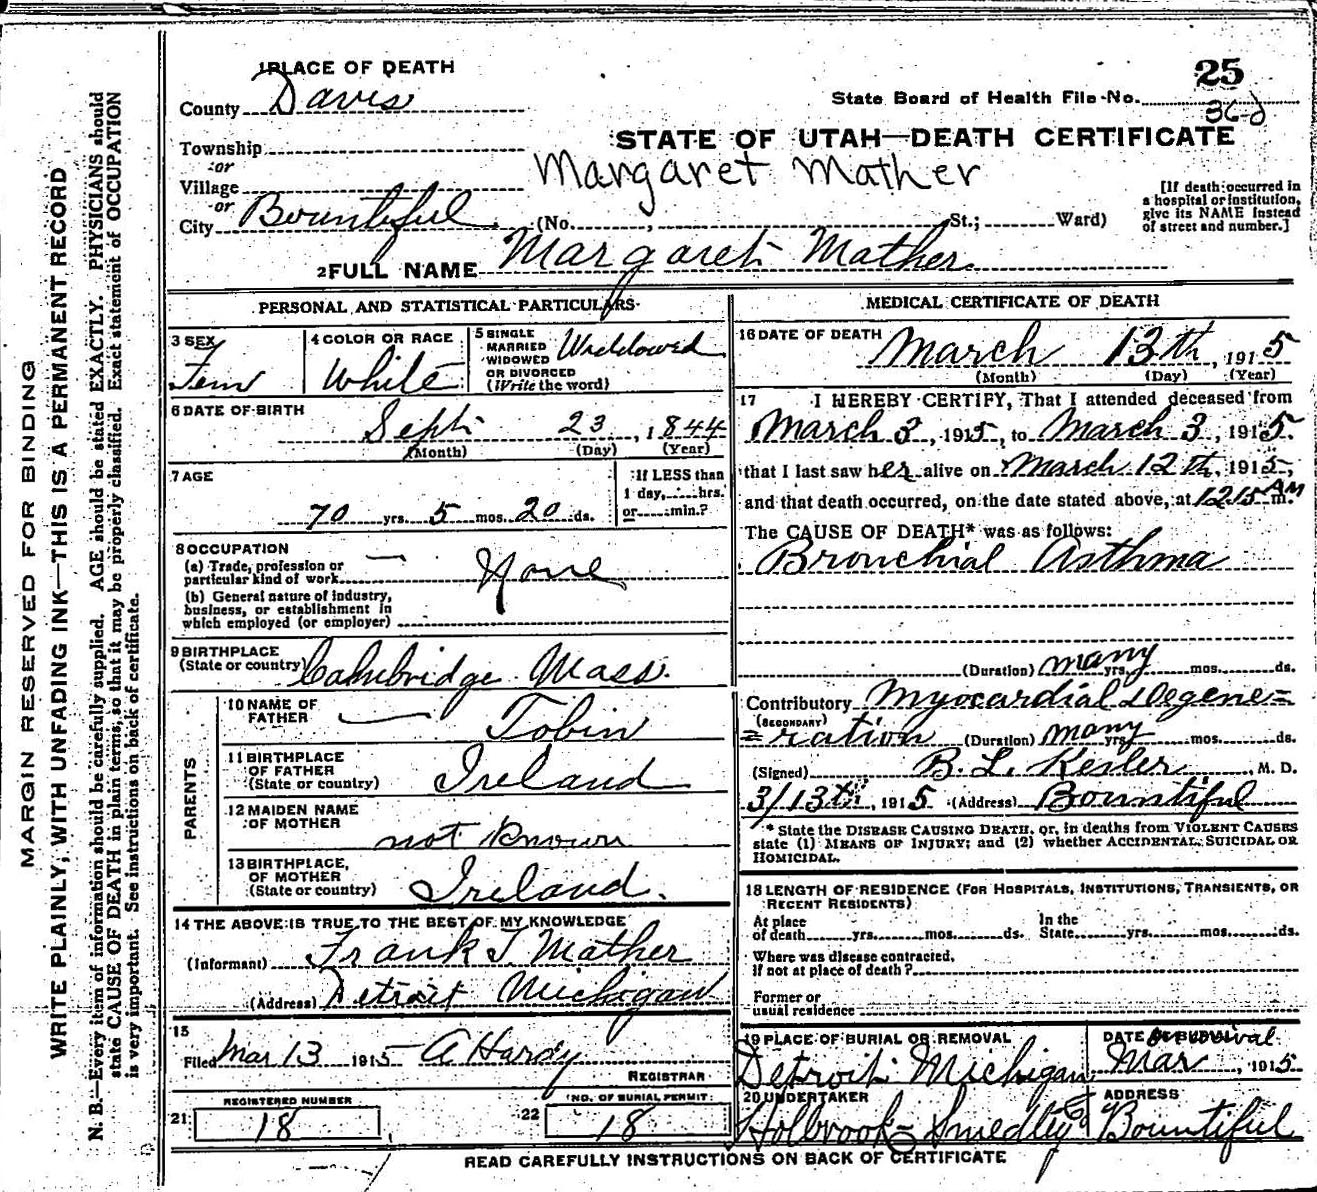 MARGIN RESERVED FOR BINDING
WRITE PLAINLY, WITH UNFADING INK—THIS IS A PERMANENT RECORD
N. B.—Every item of information should be carefully supplied. AGE should be stated EXACTLY. PHYSICIANS should
state CAUSE OF DEATH in plain terms, so that it may be properly classified. Exact statement of OCCUPATION
is very important. See instructions on back of certificate.
1 PLACE OF DEATH
County Davis
Township
or
Village
or
City Bountiful (No. , St.; Ward)
25
State Board of Health File No.
36-d
STATE OF UTAH—DEATH CERTIFICATE
Margaret Mather
[If death occurred in
a hospital or institution,
give its NAME instead
of street and number.]
2 FULL NAME Margaret Mather
PERSONAL AND STATISTICAL PARTICULARS
3 SEX
Fem
4 COLOR OR RACE
White
5 SINGLE
MARRIED
WIDOWED
OR DIVORCED
(Write the word)
Widdowed
6 DATE OF BIRTH
Sept 23, 1844
(Month) (Day) (Year)
7 AGE
70 yrs. 5 mos. 20 ds.
If LESS than
1 day, hrs.
or min.?
8 OCCUPATION
(a) Trade, profession or
particular kind of work None
(b) General nature of industry,
business, or establishment in
which employed (or employer)
9 BIRTHPLACE
(State or country) Cambridge Mass.
PARENTS
10 NAME OF
FATHER — Tobin
11 BIRTHPLACE
OF FATHER
(State or country) Ireland
12 MAIDEN NAME
OF MOTHER
not Known
13 BIRTHPLACE,
OF MOTHER
(State or country) Ireland.
14 THE ABOVE IS TRUE TO THE BEST OF MY KNOWLEDGE
(Informant) Frank T. Mather
(Address) Detroit Michigan
15
Filed Mar 13 1915 A Hardy
REGISTRAR
21 REGISTERED NUMBER
18
22 NO. OF BURIAL PERMIT
18
MEDICAL CERTIFICATE OF DEATH
16 DATE OF DEATH March 13th, 1915
(Month) (Day) (Year)
17 I HEREBY CERTIFY, That I attended deceased from
March 3, 1915, to March 3, 1915.
that I last saw her alive on March 12th, 1915,
and that death occurred, on the date stated above, at 1215 AM m.
The CAUSE OF DEATH* was as follows:
Bronchial Asthma
(Duration) many yrs. mos. ds.
Contributory Myocardial Degene=
(SECONDARY)
=ration (Duration) many yrs. mos. ds.
(Signed) B. L. Kesler, M. D.
3/13th, 1915 (Address) Bountiful
* State the DISEASE CAUSING DEATH, or, in deaths from VIOLENT CAUSES
state (1) MEANS OF INJURY; and (2) whether ACCIDENTAL, SUICIDAL OR
HOMICIDAL.
18 LENGTH OF RESIDENCE (FOR HOSPITALS, INSTITUTIONS, TRANSIENTS, OR
RECENT RESIDENTS)
At place
of death yrs. mos. ds.
In the
State yrs. mos. ds.
Where was disease contracted,
if not at place of death?
Former or
usual residence
19 PLACE OF BURIAL OR REMOVAL
Detroit Michigan
DATE OF BURIAL
Mar, 1915
20 UNDERTAKER
Holbrook-Smedley Co
ADDRESS
Bountiful
READ CAREFULLY INSTRUCTIONS ON BACK OF CERTIFICATE